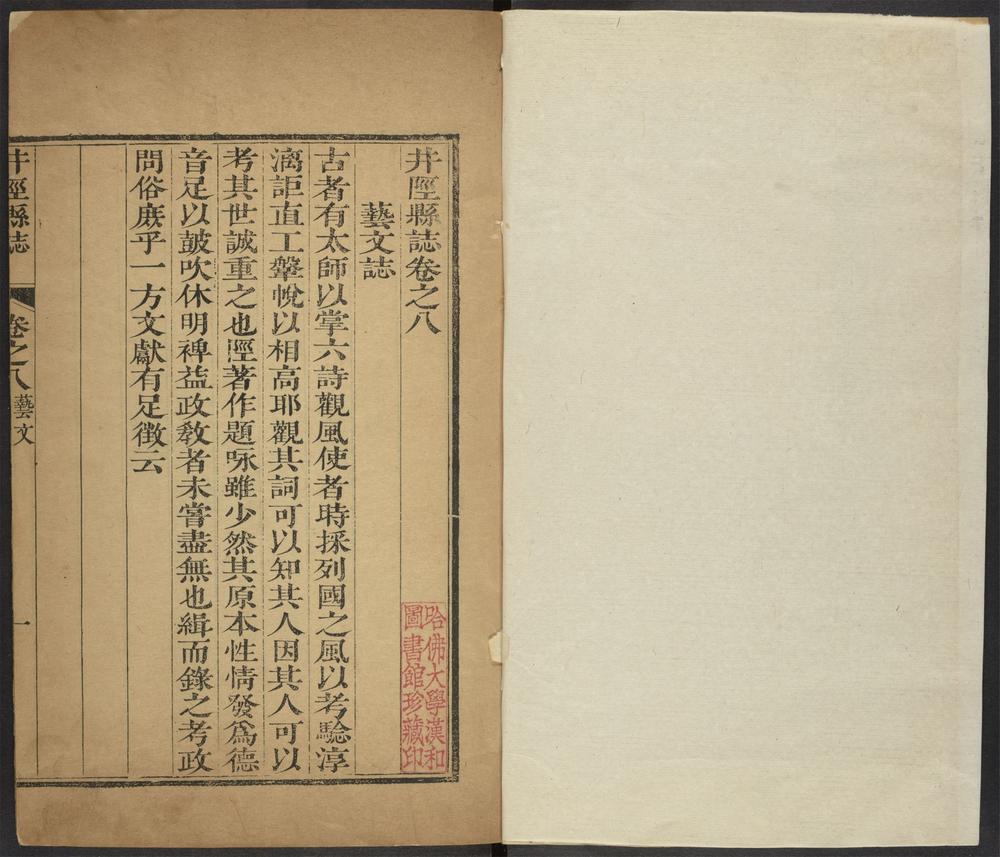 井陘縣誌卷之八
藝文誌
古者有太師以掌六詩觀風使者時採列國之風以考驗淳
漓詎直工鞶帨以相高耶觀其詞可以知其人因其人可以
考其世誠重之也陘著作題咏雖少然其原本性情發爲德
音足以皷吹休明裨益政敎者未嘗盡無也緝而錄之考政
問俗庶乎一方文獻有足徵云
井陘縣誌 卷之八 藝文 一
哈佛大學漢和
圖書館珍藏印